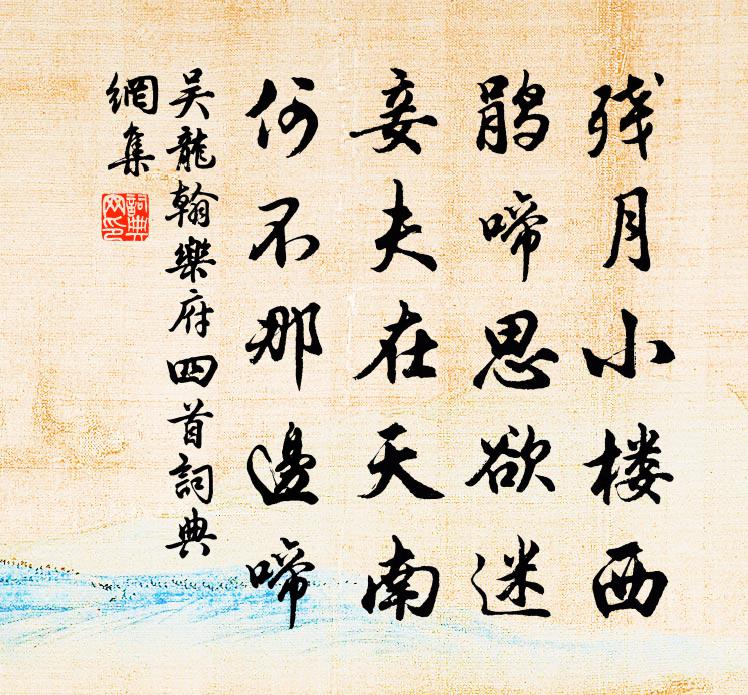 残月小楼西
鹃啼思欲迷
妾夫在天南
何不那邊啼
吴龍翰樂府四首詞典
網集
詞典
网印